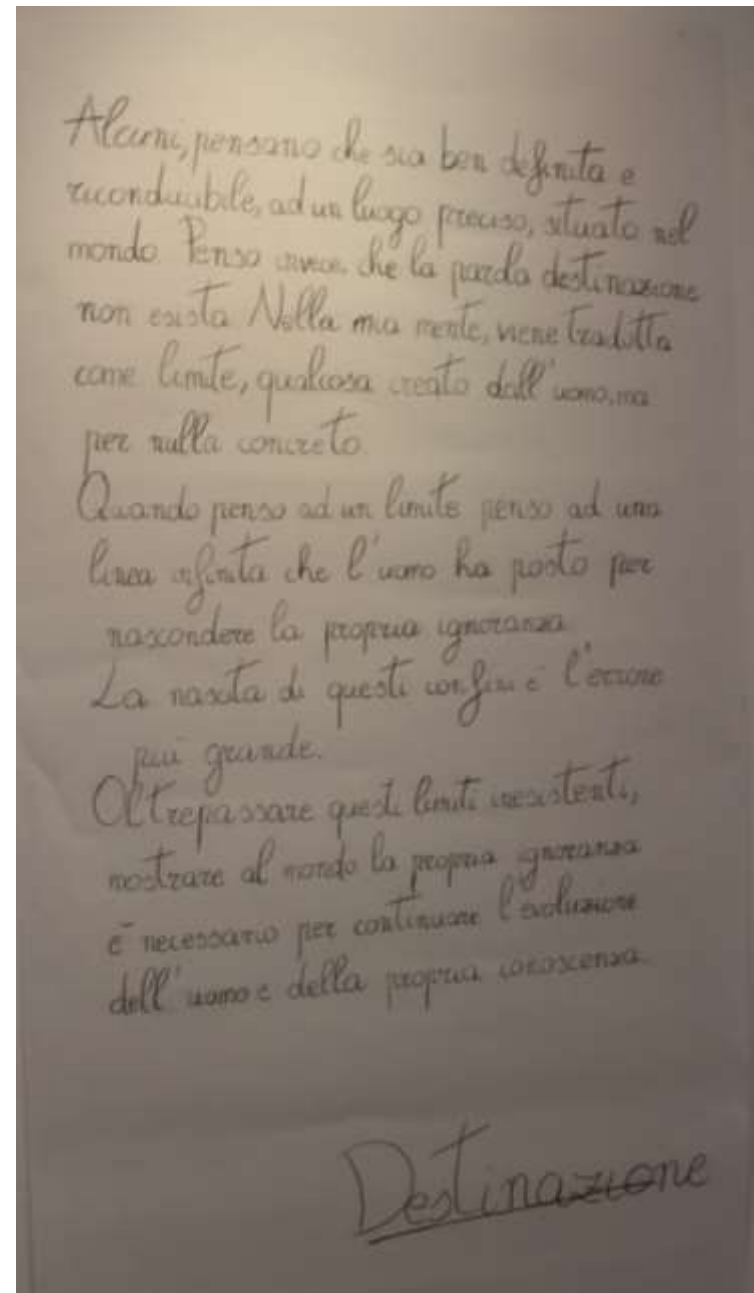 Alcuni, pensano che sia ben definita e
riconducibile, ad un luogo preciso, situato nel
mondo. Penso invece, che la parola destinazione
non esista. Nella mia mente, viene tradotta
come limite, qualcosa creato dall'uomo, ma
per nulla concreto.
Quando penso ad un limite penso ad una
linea infinita che l'uomo ha posto per
nascondere la propria ignoranza.
La nascita di questi confini è l'errore
più grande.
Oltrepassare questi limiti inesistenti,
mostrare al mondo la propria ignoranza
è necessario per continuare l'evoluzione
dell'uomo e della propria conoscenza.
Destinazione